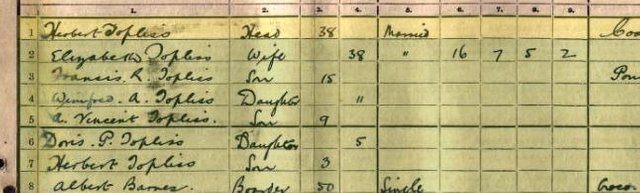 1. 2. 3. 4. 5. 6. 7. 8. 9.
1 Herbert Topliss Head 38 Married
2 Elizabeth Topliss Wife 38 " 16 7 5 2
3 Francis. R. Topliss Son 15
4 Winifred. A. Topliss Daughter "
5 A. Vincent Topliss. Son 9
6 Doris. P. Topliss Daughter 5
7 Herbert Topliss Son 3
8 Albert Barnes. Boarder 50 Single